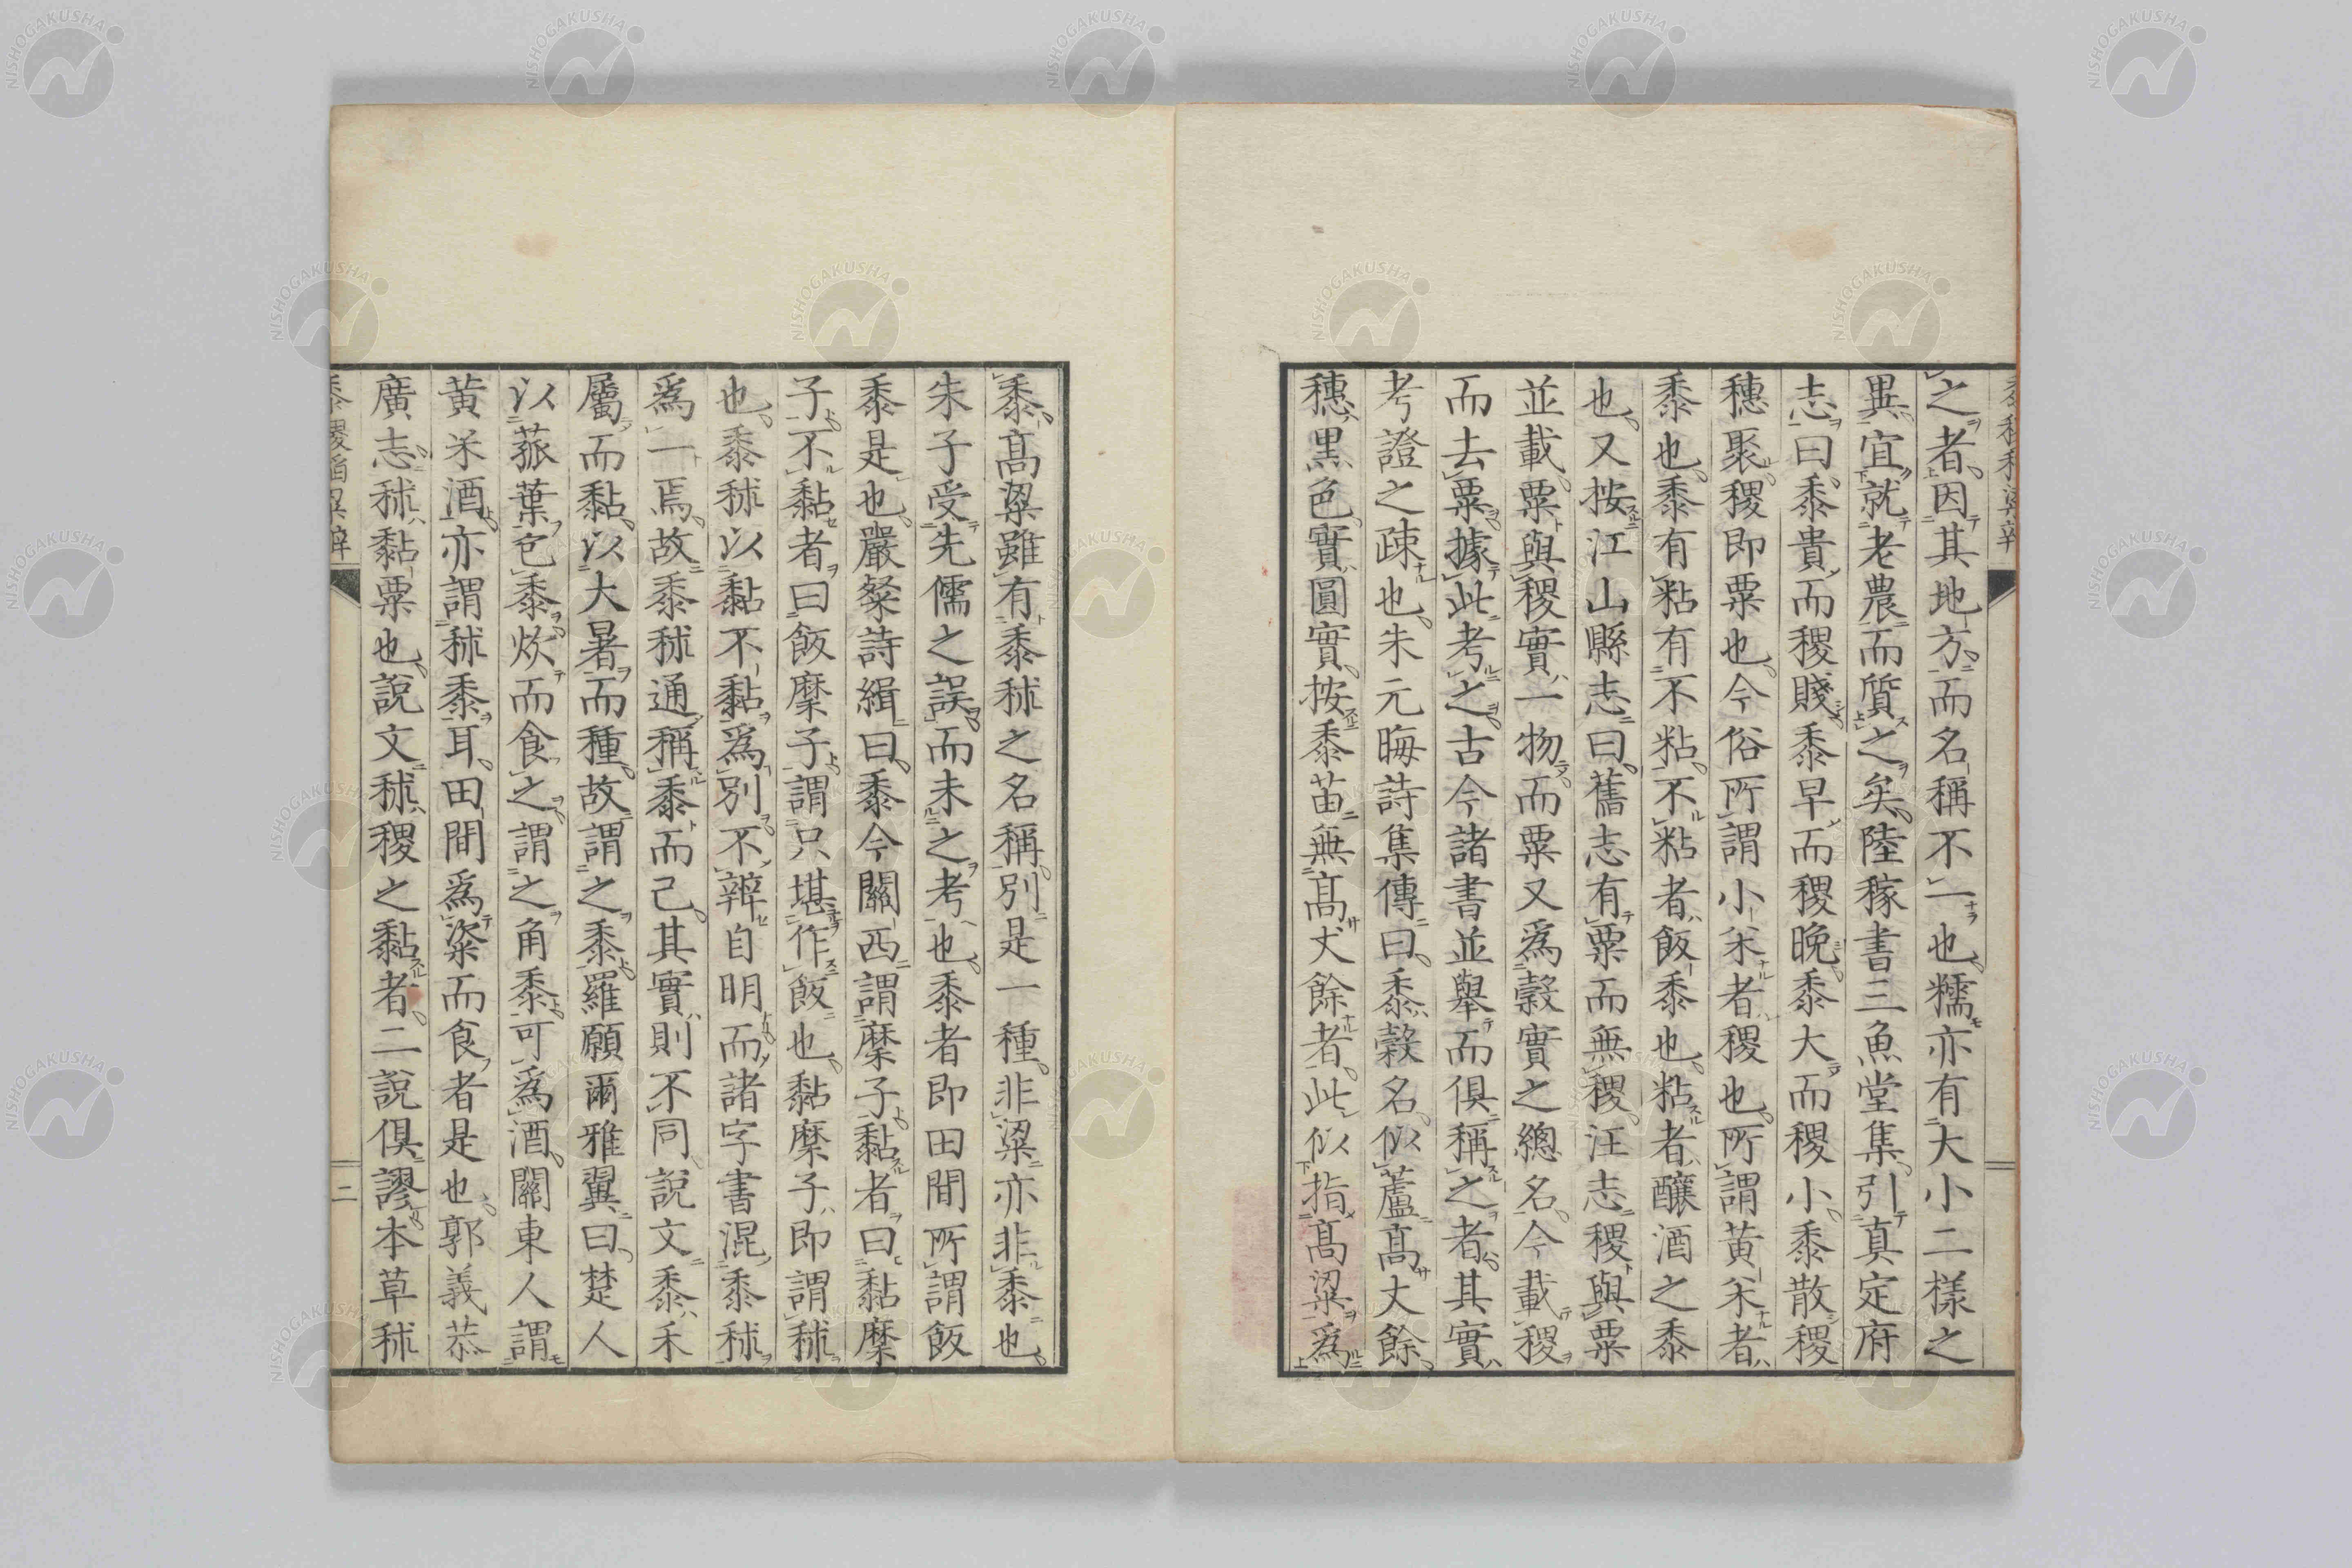 之者因其地方而名稱不一也糯亦有大小二樣之
異宜就老農而質之矣陸稼書三魚堂集引真定府
志曰黍貴而稷賤黍早而稷晚黍大而稷小黍散稷
穗聚稷即粟也今俗所謂小米者稷也所謂黃米者
黍也黍有粘有不粘不粘者飯黍也粘者釀酒之黍
也又按江山縣志曰舊志有粟而無稷汪志稷與粟
並載粟與稷實一物而粟又為穀實之總名今載稷
而去粟據此考之古今諸書並舉而俱稱之者其實
考證之疎也朱元晦詩集傳曰黍穀名似蘆高丈餘
穗黑色實圓實按黍苗無高丈餘者此似指高粱為
黍高粱雖有黍秫之名稱別是一種非粱亦非黍也
朱子受先儒之誤而未之考也黍者即田間所謂飯
黍是也嚴粲詩緝曰黍今關西謂穈子黏者曰黏穈
子不黏者曰飯穈子謂只堪作飯也黏穈子即謂秫
也黍秫以黏不黏為別不辨自明而諸字書混黍秫
為一焉故黍秫通稱黍而已其實則不同說文黍禾
屬而黏以大暑而種故謂之黍羅願爾雅翼曰楚人
以菰葉包黍炊而食之謂之角黍可為酒關東人謂
黃米酒亦謂秫黍耳田間為粢而食者是也郭義恭
廣志秫黏粟也說文秫稷之黏者二說俱謬本草秫
二